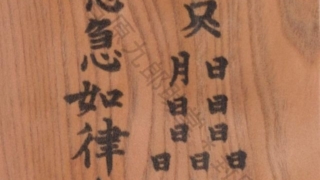 月日
日日
日日
日日日
急急如律